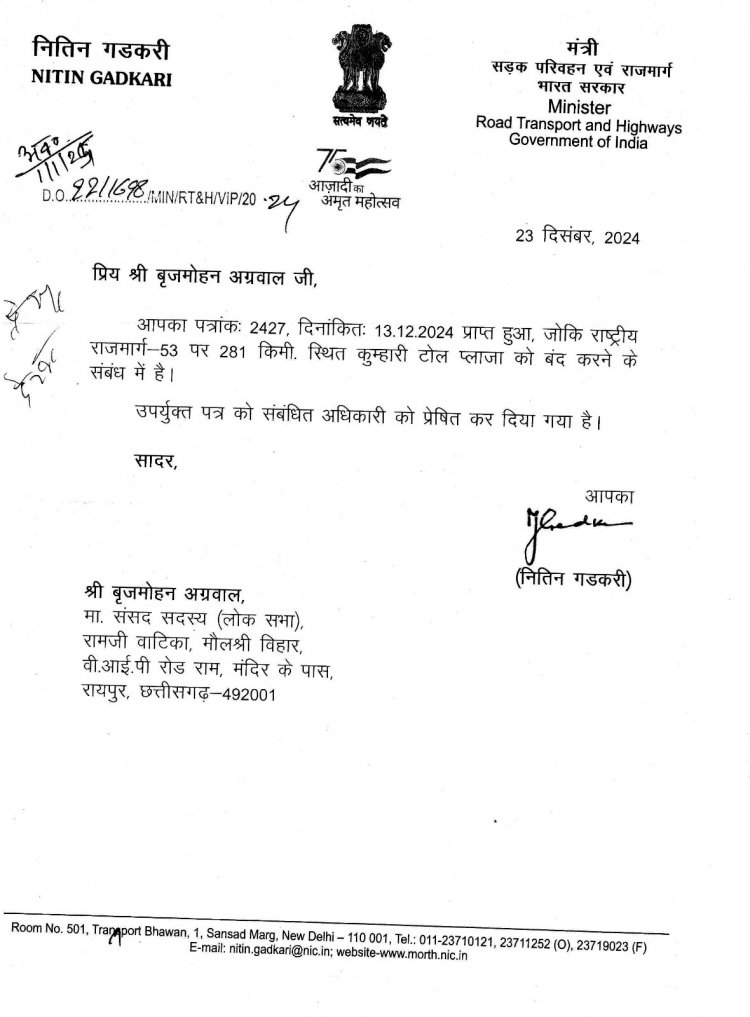 नितिन गडकरी
NITIN GADKARI
सत्यमेव जयते
मंत्री
सड़क परिवहन एवं राजमार्ग
भारत सरकार
Minister
Road Transport and Highways
Government of India
1/1/25
D.O. 221698/MIN/RT&H/VIP/20.24
75
आज़ादी का
अमृत महोत्सव
23 दिसंबर, 2024
प्रिय श्री बृजमोहन अग्रवाल जी,
आपका पत्रांकः 2427, दिनांकितः 13.12.2024 प्राप्त हुआ, जोकि राष्ट्रीय
राजमार्ग–53 पर 281 किमी. स्थित कुम्हारी टोल प्लाजा को बंद करने के
संबंध में है।
उपर्युक्त पत्र को संबंधित अधिकारी को प्रेषित कर दिया गया है।
सादर,
आपका
(नितिन गडकरी)
श्री बृजमोहन अग्रवाल,
मा. संसद सदस्य (लोक सभा),
रामजी वाटिका, मौलश्री विहार,
वी.आई.पी रोड राम, मंदिर के पास,
रायपुर, छत्तीसगढ़–492001
Room No. 501, Transport Bhawan, 1, Sansad Marg, New Delhi – 110 001, Tel.: 011-23710121, 23711252 (O), 23719023 (F)
E-mail: nitin.gadkari@nic.in; website-www.morth.nic.in